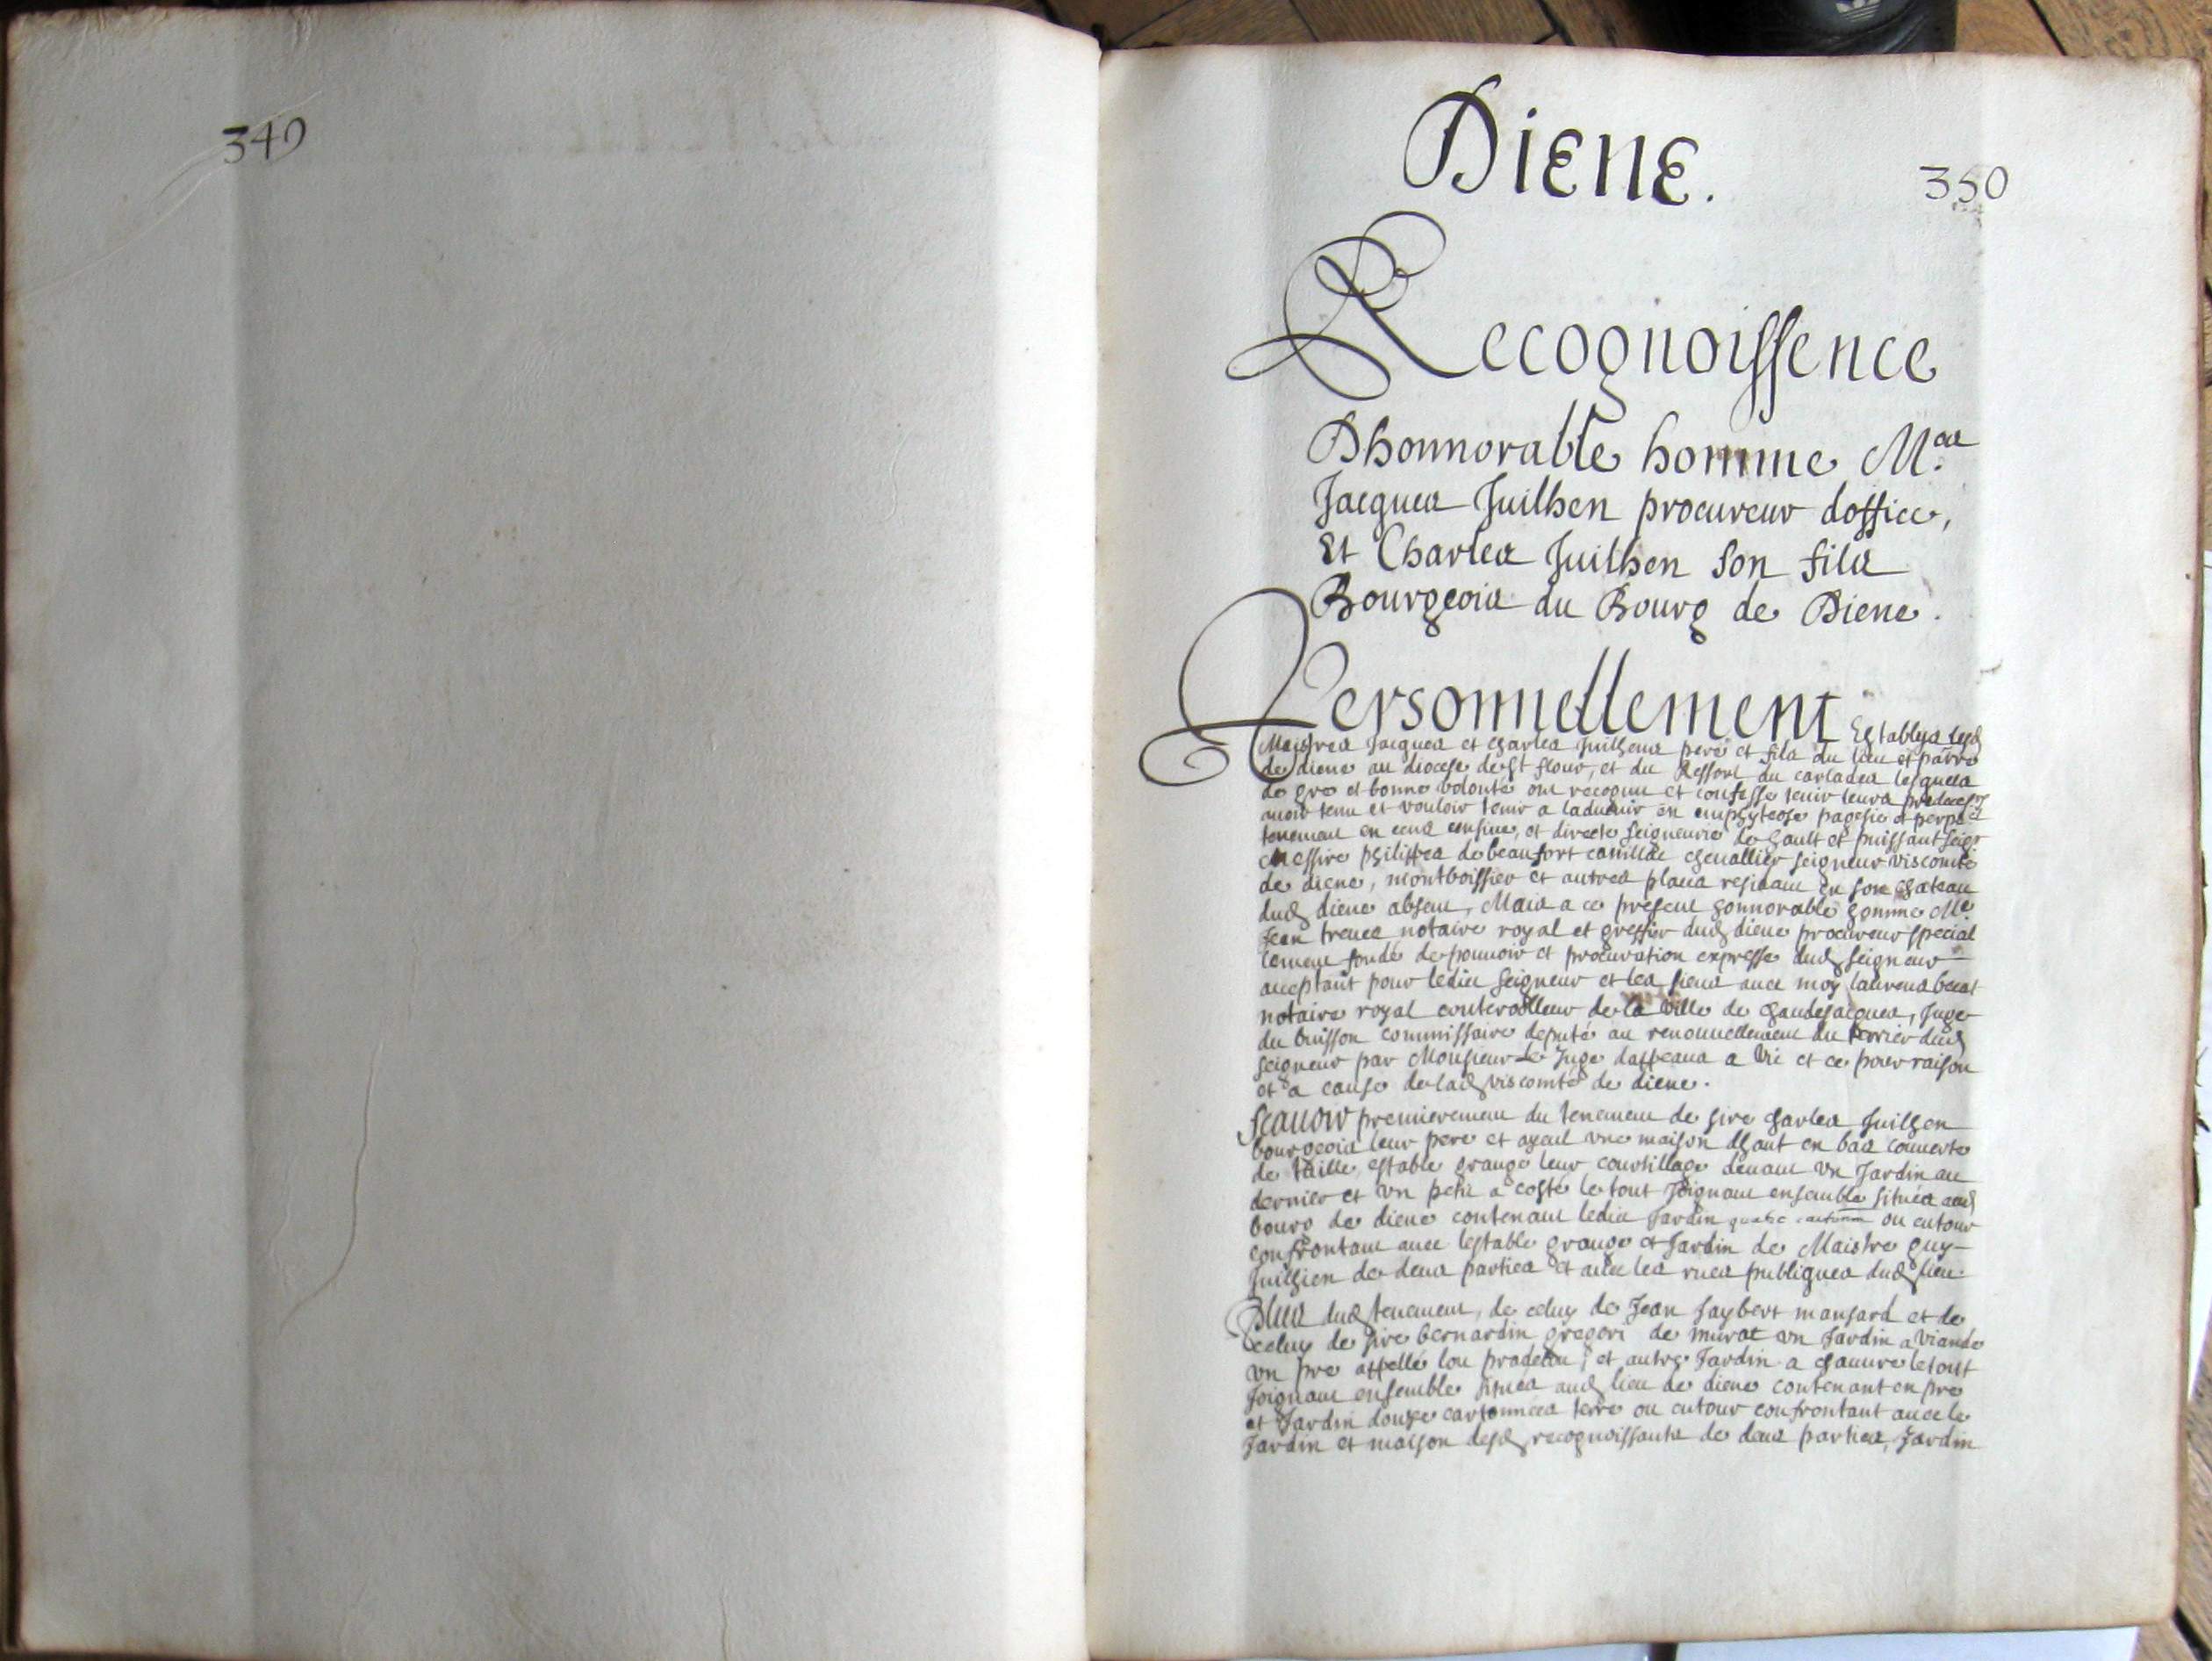 349
Diene.
350
Recognoissence
Dhonnorable homme M.es
Jacques Juilhen procureur doffice,
Et Charles Juilhen son fils
Bourgeois du Bourg de Diene.
Personnellement Establys lesd
Maistres Jacques et charles Juilhens pere et fils du lieu et parre
de diene au diocese de St flour, et du Ressort du carlades lesquels
de gre et bonne volonté ont recognu et confesse tenir leurs predecess
avoir tenu et vouloir tenir a ladvenir en emphyteose pagesie et perp
tenement en cens censive, et directe seigneurie de hault et puissant seigr
Messire philippes de beaufort canillac chevallier seigneur viscomte
de diene, montboissier et autres places residant en son chateau
dud diene absent, Mais a ce present honnorable homme Me
Jean treues notaire royal et greffier dud diene procureur special
lement fondé de pouvoir et procuration expresse dud seigneur
acceptant pour ledit seigneur et les siens avec moy laurens
notaire royal conterolleur de la ville de chaudesaigues, Juge
du buisson commissaire deputé au renouvellement du terrier dud
seigneur par Monsieur le Juge dappeaux a Vic et ce pour raison
et a cause de lad viscomté de diene.
Scauoir premierement du tenement de sire charles Juilhen
bourgeois leur pere et ayeul une maison dhaut en bas couverte
de tuille, estable grange leur courtillage devant un Jardin au
dernier et un petit a costé le tout Joignant ensemble situés aud
bourg de diene contenant ledit Jardin ou entour
confrontant avec lestable grange et Jardin de Maistre guy
Juilhen de deux parties et avec les rues publiques dud lieu.
Plus dud tenement, de celuy de Jean Jaybert mansard et de
celuy de sire bernardin gregori de murat un Jardin a viande
un pre appellé lou pradelou, et autre Jardin a chanvre le tout
Joignant ensemble situés aud lieu de diene contenant en pre
et Jardin douze cartonnees terre ou entour confrontant avec le
Jardin et maison desd recognoissants de deux parties, Jardin